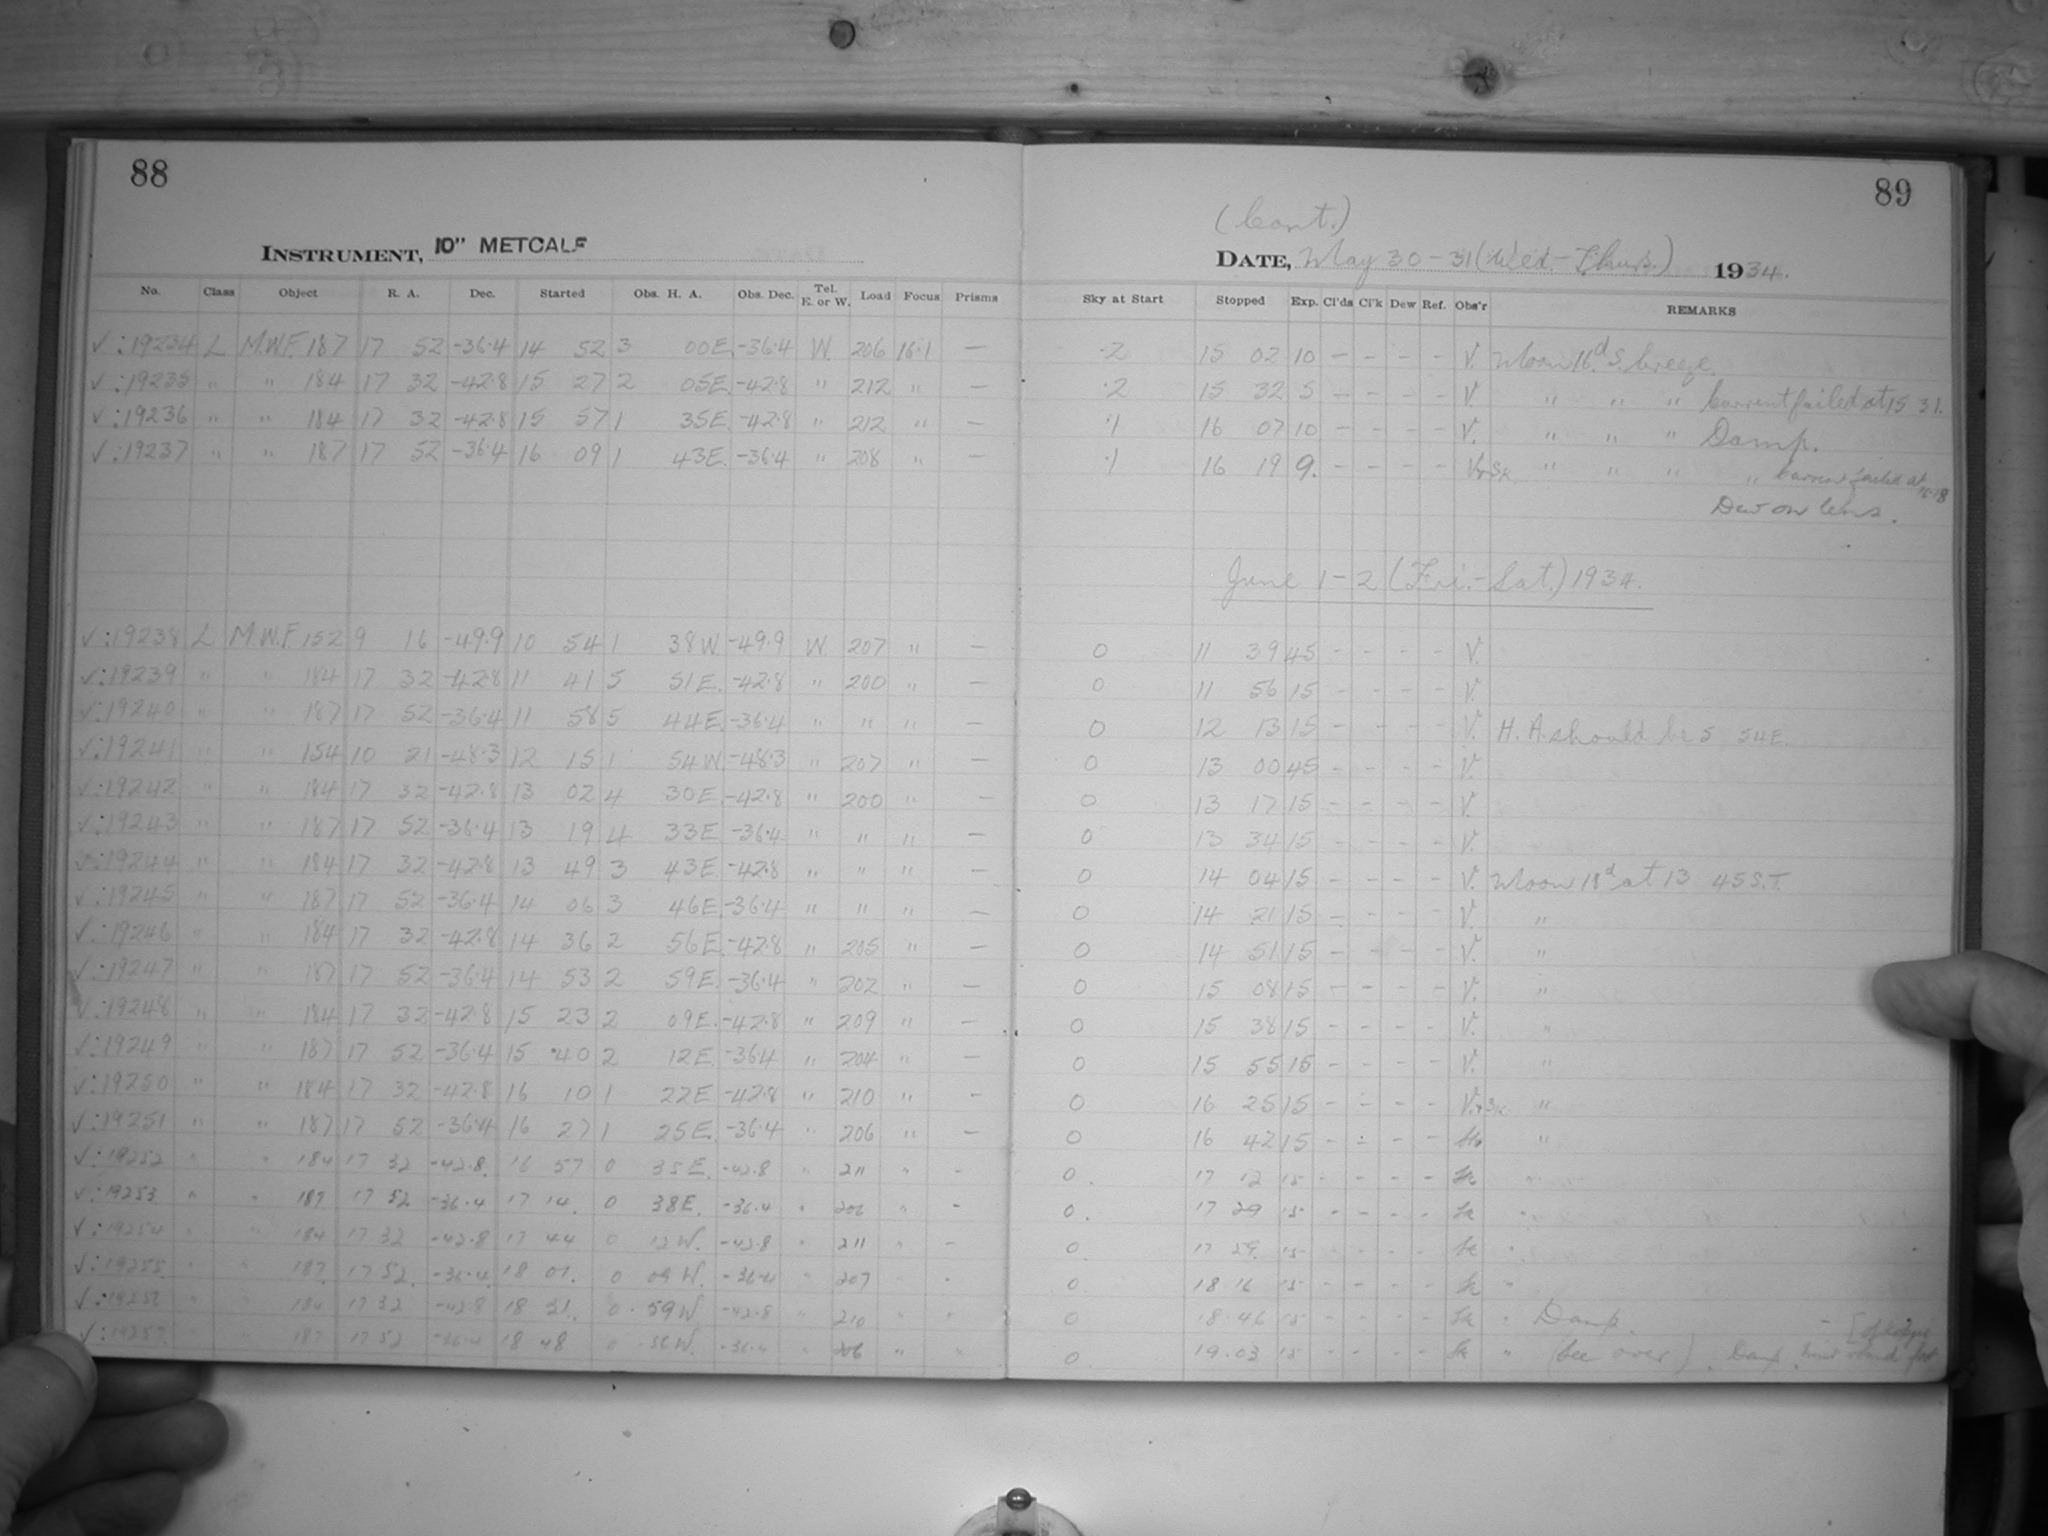 88
89
(Cont.)
INSTRUMENT, 10" METCALF
DATE, May 30-31 (Wed.-Thurs.) 1934.
No. Class Object R. A. Dec. Started Obs. H. A. Obs. Dec. Tel. E. or W. Load Focus Prisms Sky at Start Stopped Exp. Cl'ds Cl'k Dew Ref. Obs'r REMARKS
√:19234 L M.W.F. 187 17 52 -36.4 14 52 3 00E. -36.4 W. 206 16.1 — .2 15 02 10 - - - - V. Moon 16d. S. breeze.
√:19235 " " 184 17 32 -42.8 15 27 2 05E. -42.8 " 212 " — .2 15 32 5 - - - - V. " " " Current failed at 15 31.
√:19236 " " 184 17 32 -42.8 15 57 1 35E. -42.8 " 212 " — .1 16 07 10 - - - - V. " " " Damp.
√:19237 " " 187 17 52 -36.4 16 09 1 43E. -36.4 " 208 " — .1 16 19 9. - - - - V+Sk. " " " " Current failed at 16.18
Dew on lens.
June 1-2 (Fri.-Sat.) 1934.
√:19238 L M.W.F. 152 9 16 -49.9 10 54 1 38W. -49.9 W. 207 " — 0 11 39 45 - - - - V.
√:19239 " " 184 17 32 -42.8 11 41 5 51E. -42.8 " 200 " — 0 11 56 15 - - - - V.
√:19240 " " 187 17 52 -36.4 11 58 5 44E. -36.4 " " " — 0 12 13 15 - - - - V. H. A. should be 5 54E.
√:19241 " " 154 10 21 -48.3 12 15 1 54W. -48.3 " 207 " — 0 13 00 45 - - - - V.
√:19242 " " 184 17 32 -42.8 13 02 4 30E. -42.8 " 200 " — 0 13 17 15 - - - - V.
√:19243 " " 187 17 52 -36.4 13 19 4 33E -36.4 " " " — 0 13 34 15 - - - - V.
√:19244 " " 184 17 32 -42.8 13 49 3 43E. -42.8 " " " — 0 14 04 15 - - - - V. Moon 18d at 13 45 S.T.
√:19245 " " 187 17 52 -36.4 14 06 3 46E. -36.4 " " " — 0 14 21 15 - - - - V. "
√:19246 " " 184 17 32 -42.8 14 36 2 56E. -42.8 " 205 " — 0 14 51 15 - - - - V. "
√:19247 " " 187 17 52 -36.4 14 53 2 59E. -36.4 " 202 " — 0 15 08 15 - - - - V. "
√:19248 " " 184 17 32 -42.8 15 23 2 09E. -42.8 " 209 " — 0 15 38 15 - - - - V. "
√:19249 " " 187 17 52 -36.4 15 40 2 12E. -36.4 " 204 " — 0 15 55 15 - - - - V. "
√:19250 " " 184 17 32 -42.8 16 10 1 22E. -42.8 " 210 " - 0 16 25 15 - - - - V.+Sk "
√:19251 " " 187 17 52 -36.4 16 27 1 25E. -36.4 " 206 " — 0 16 42 15 - - - - Sk "
√:19252 " " 184 17 32 -42.8. 16 57 0 35E. -42.8 " 211 " - 0. 17 12 15 - - - - Sk "
√:19253 " " 187 17 52 -36.4 17 14. 0 38E. -36.4 " 206 " - 0. 17 29 15 - - - - Sk "
√:19254 " " 184 17 32 -42.8 17 44 0 12W. -42.8 " 211 " - 0. 17 59. 15 - - - - Sk "
√:19255. " " 187. 17 52. -36.4. 18 01. 0 09W. -36.4 " 207 " - 0 18 16 15 - - - - Sk "
√:19256 " " 184 17 32 -42.8 18 31. 0. 59W. -42.8 " 210 " " 0 18.46 15 - - - - Sk " Damp.
√:19257. " " 187 17 52 -36.4 18 48 0 56W. -36.4 " 206 " " 0. 19.03 15 - - - - Sk " (See over). Damp.